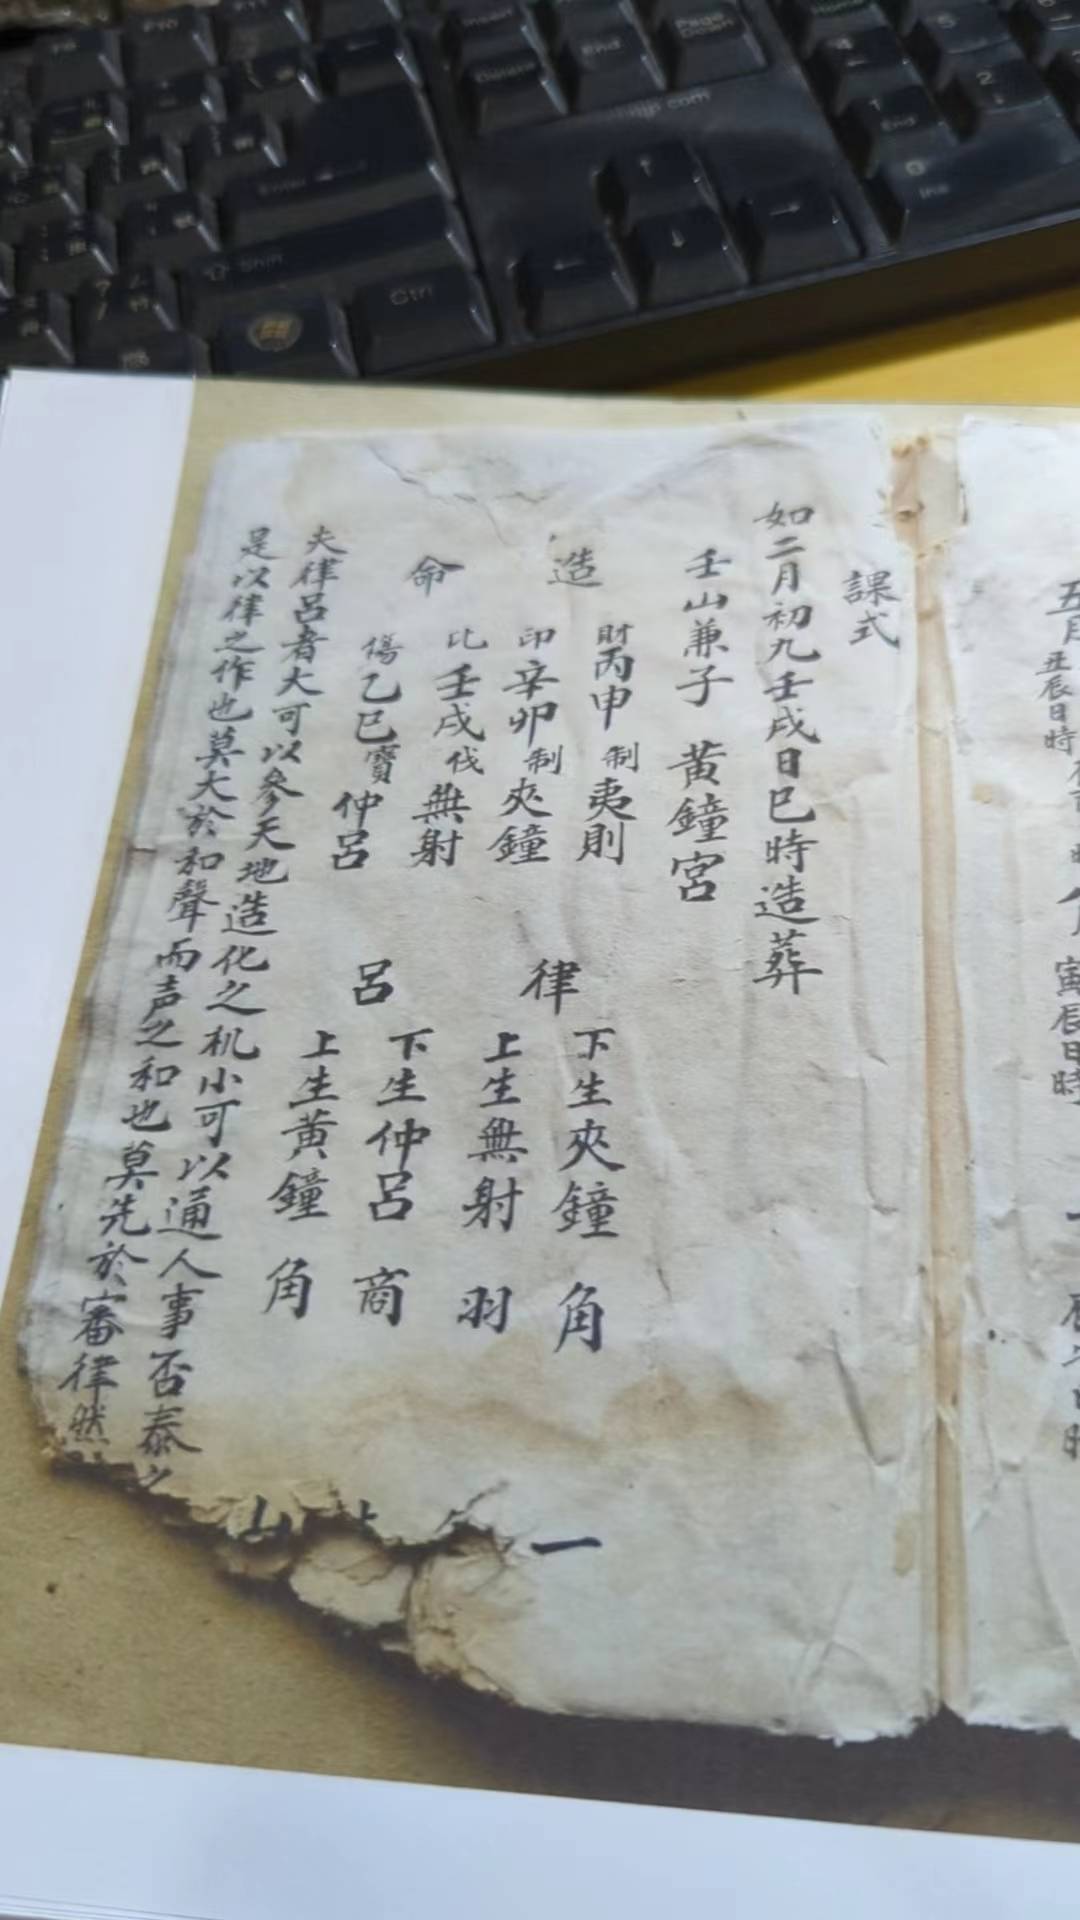 五月 丑辰日時
寅辰日時
課式
如二月初九壬戌日巳時造葬
壬山兼子 黃鐘宮
造命
財丙申 制 夷則
印辛卯 制 夾鐘
比壬戌 伐 無射
傷乙巳 寶 仲呂
律呂
下生夾鐘 角
上生無射 羽
下生仲呂 商
上生黃鐘 角
一
夫律呂者大可以參天地造化之机小可以通人事否泰之
是以律之作也莫大於和聲而声之和也莫先於審律然
Insert
Page Down
Delete
End
Enter
Shift
Ctrl
F10
F11
4
5
1
End
2
0
Ins